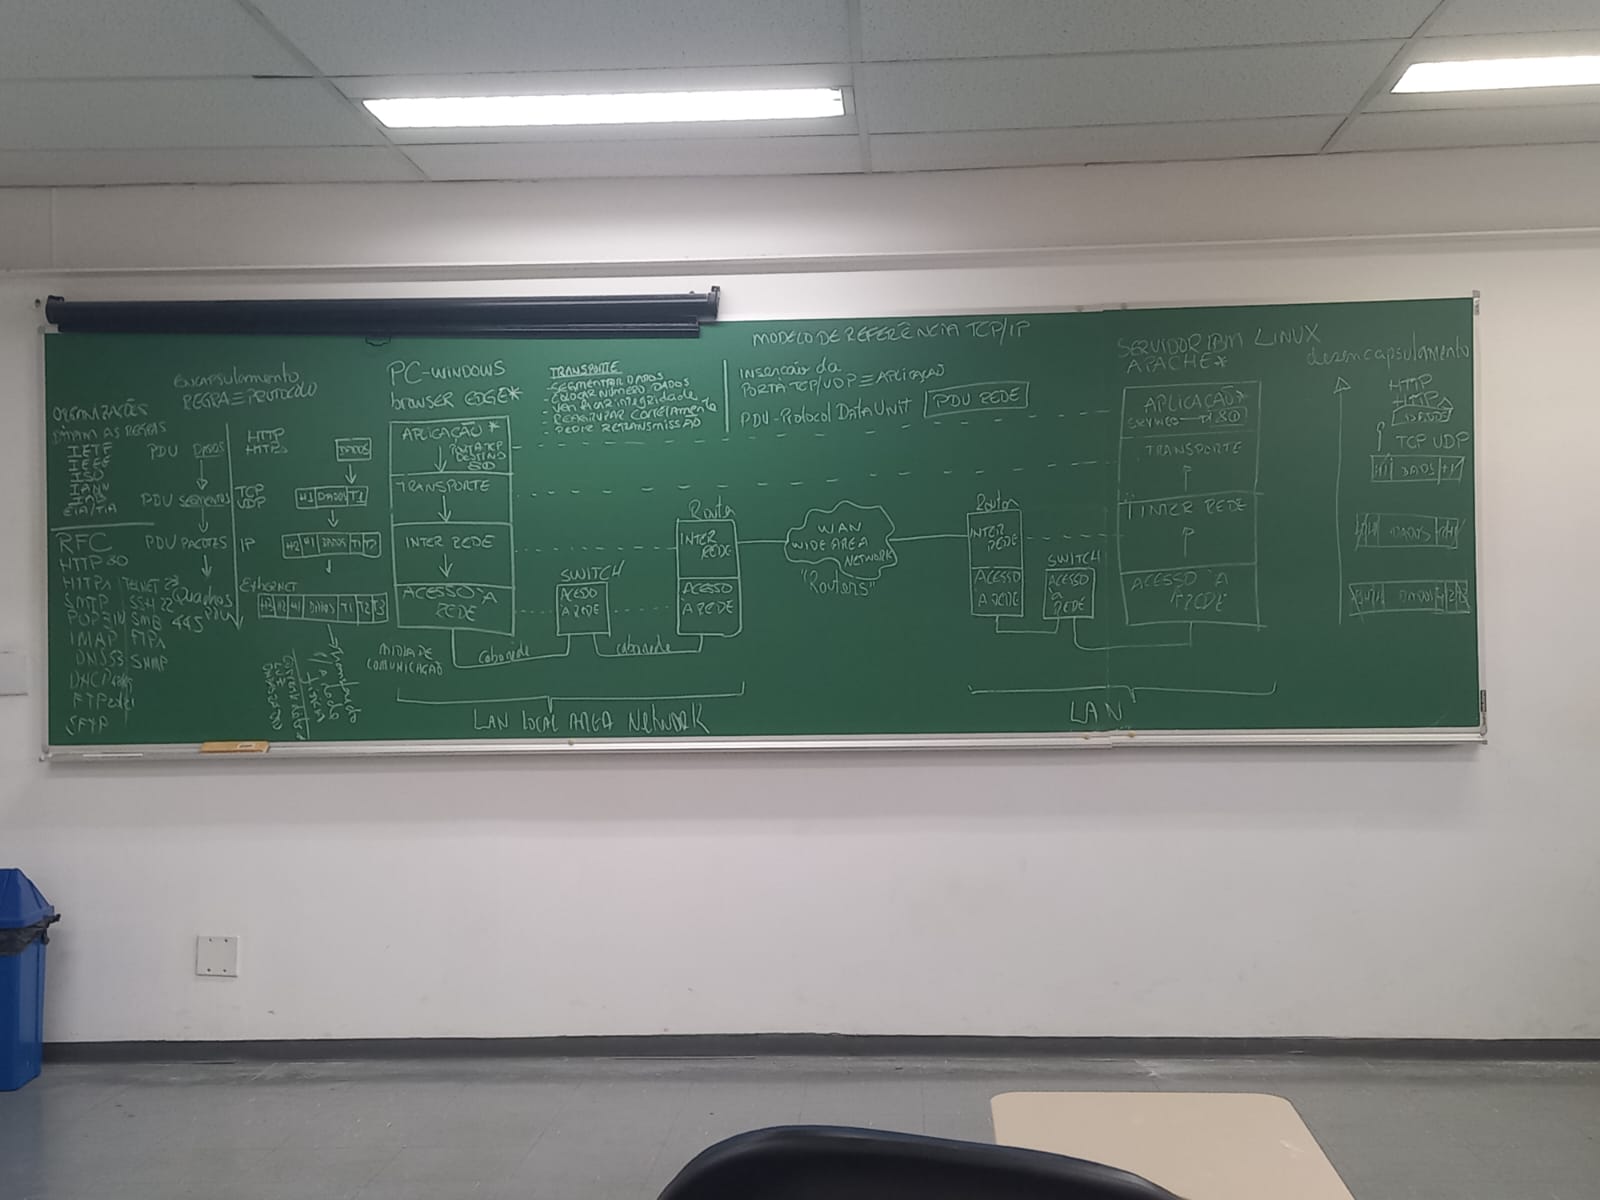 MODELO DE REFERÊNCIA TCP/IP
ENCAPSULAMENTO
REGRA ≡ PROTOCOLO
ORGANIZAÇÕES
DITAM AS REGRAS
IETF
IEEE
ISO
EIA/TIA
RFC
HTTP 80
HTTPS
SMTP
POP3 110
IMAP
DNS 53
DHCP
FTP
SFTP
TELNET 23
SSH 22
SMB 445
SNMP
PDU DADOS
PDU SEGMENTOS
PDU PACOTES
Quadros
PDU
HTTP
HTTPS
TCP
UDP
IP
ETHERNET
DADOS
H1 DADOS T1
H2 H1 DADOS T1 T2
H3 H2 H1 DADOS T1 T2 T3
PC-WINDOWS
browser EDGE*
APLICAÇÃO *
PORTA TCP
DESTINO
80
TRANSPORTE
INTER REDE
ACESSO À
REDE
MIDIA DE
COMUNICAÇÃO
cabo rede
cabo rede
TRANSPORTE
- SEGMENTAR DADOS
- COLOCAR NÚMERO DADOS
- Verificar integridade
- REAGRUPAR CORRETAMENTE
- PEDIR RETRANSMISSÃO
Inserção da
PORTA TCP/UDP ≡ APLICAÇÃO
PDU - Protocol DATA UNIT
PDU REDE
SWITCH
ACESSO
A REDE
Router
INTER
REDE
ACESSO
A REDE
LAN LOCAL AREA NETWORK
WAN
WIDE AREA
NETWORK
"Routers"
Router
INTER
REDE
ACESSO
A REDE
SWITCH
ACESSO
à
REDE
LAN
SERVIDOR IBM LINUX
APACHE*
APLICAÇÃO*
TRANSPORTE
INTER REDE
ACESSO À
REDE
desencapsulamento
HTTP
HTTPS
DADOS
TCP UDP
H1 DADOS T1
DADOS
DADOS